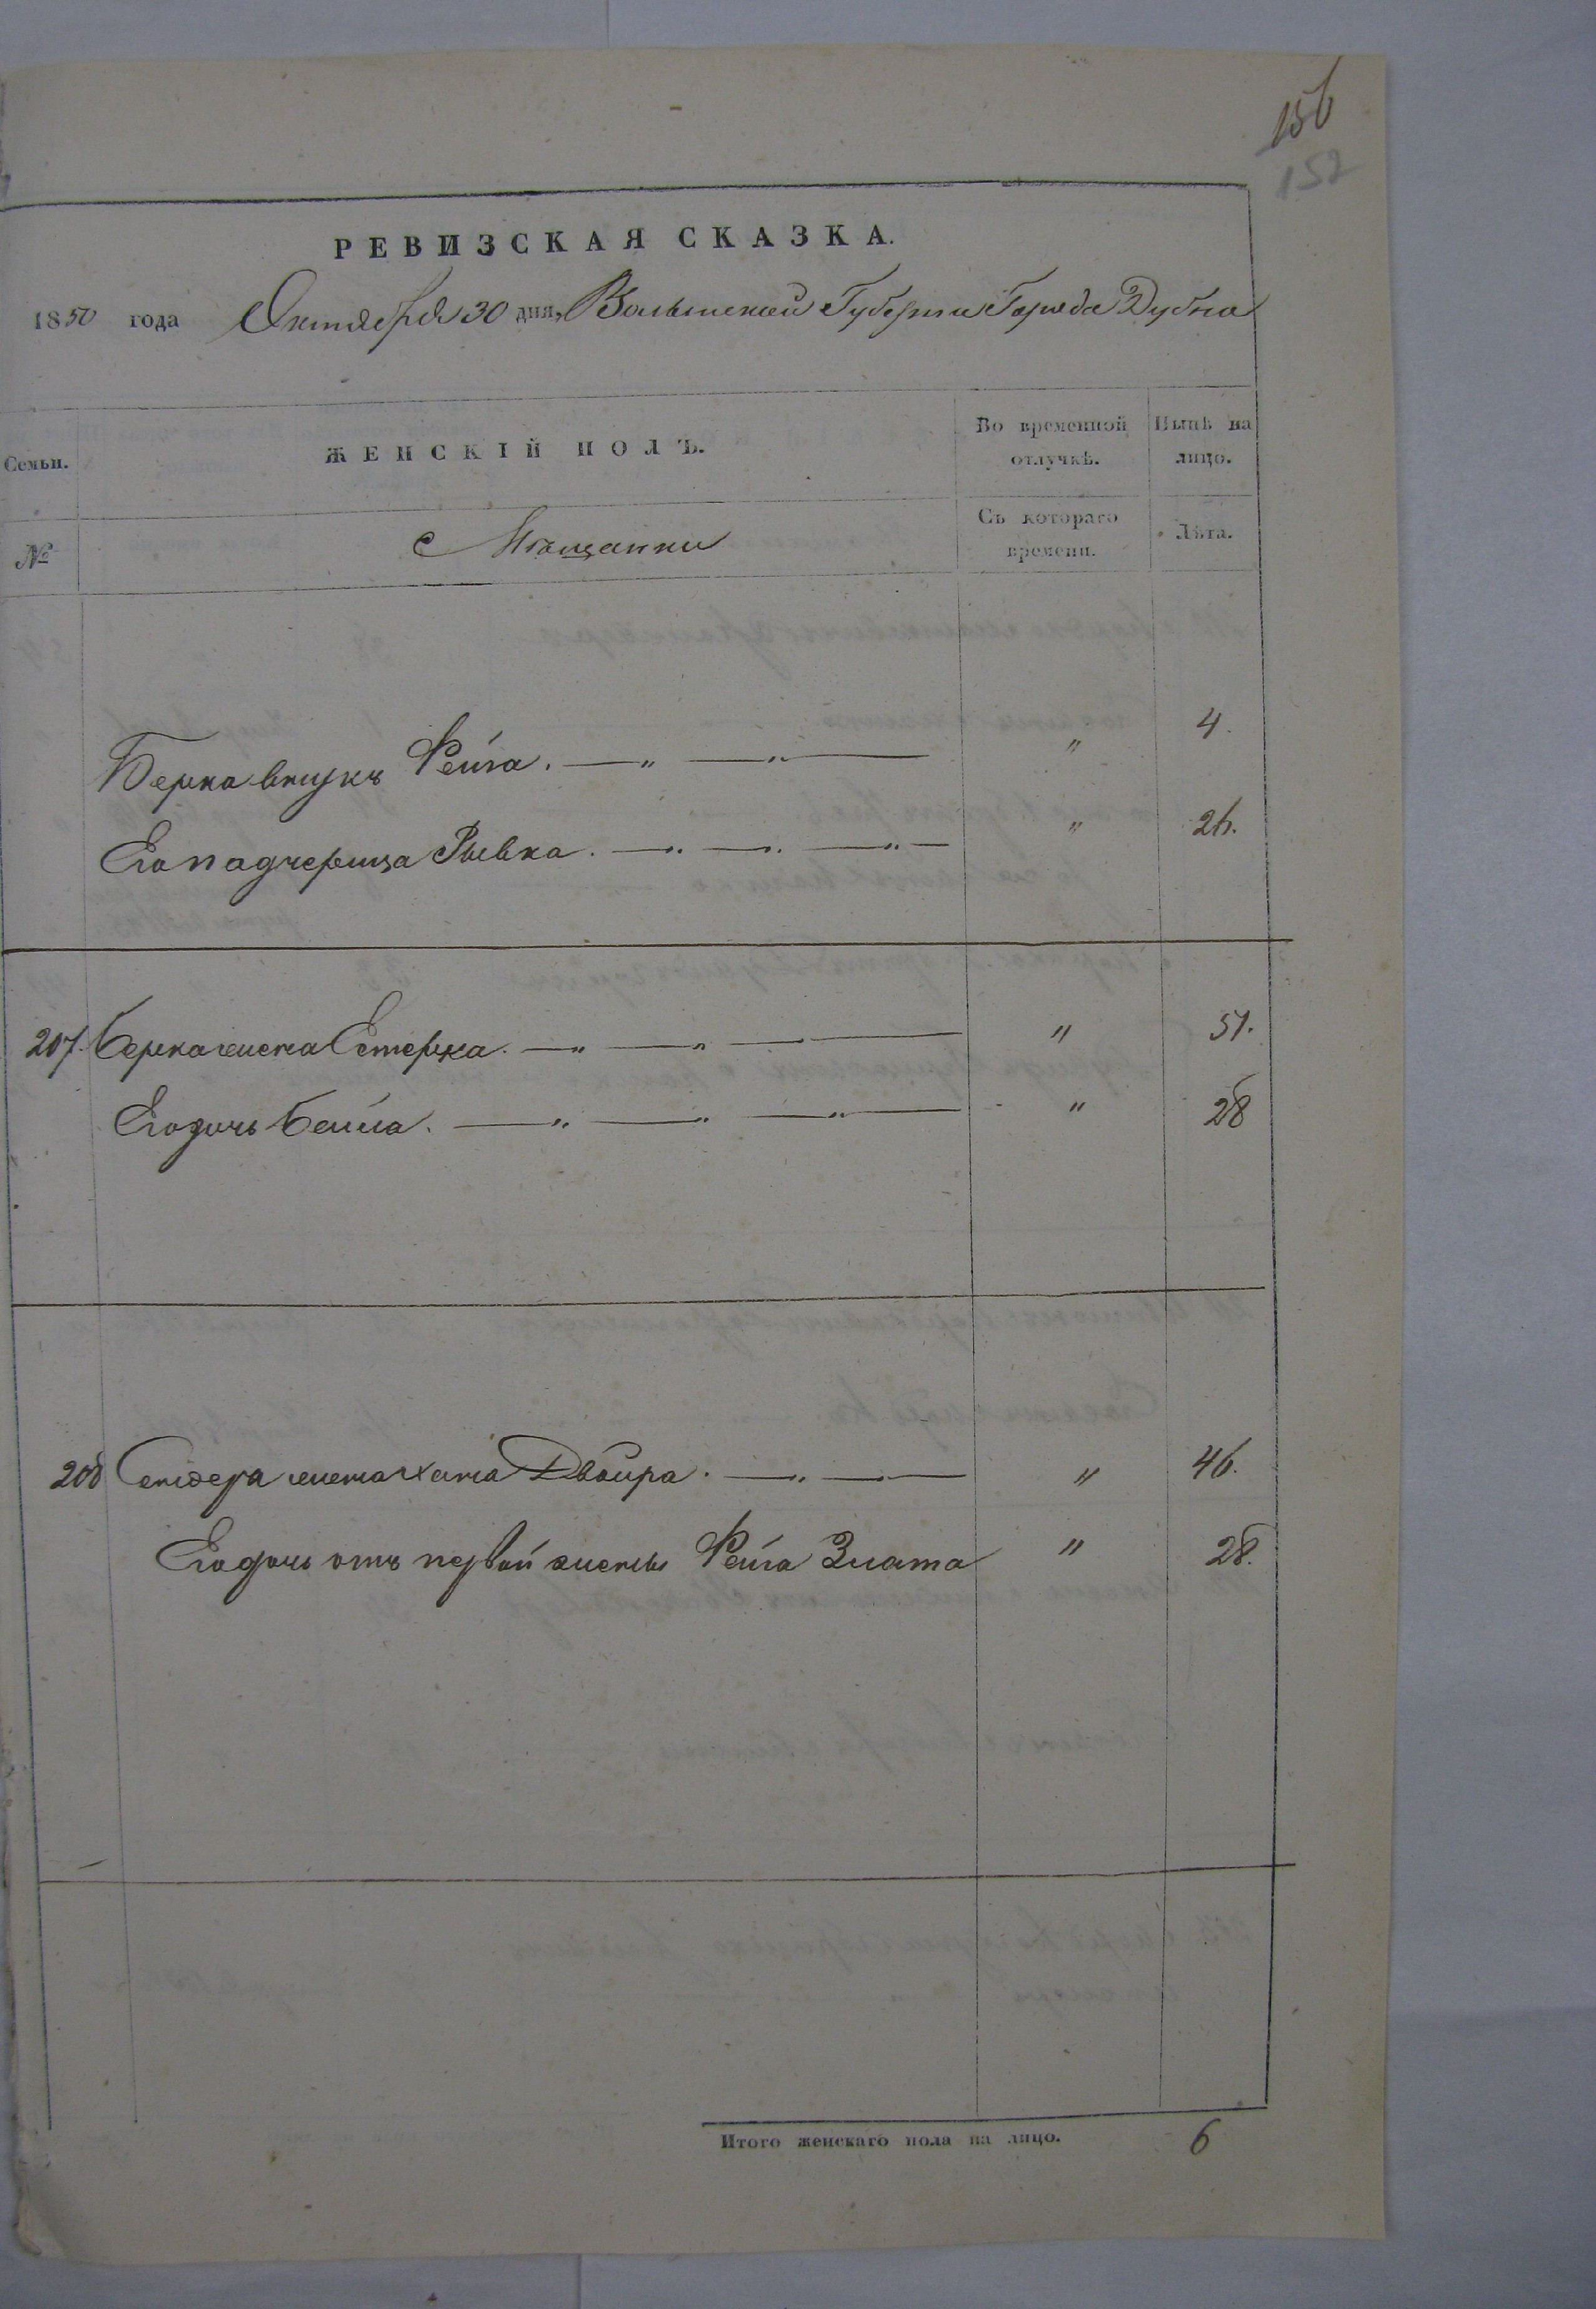 156
152
РЕВИЗСКАЯ СКАЗКА.
1850 года Октября 30 дня, Волынской Губернии Города Дубна
Семьи.
ЖЕНСКІЙ ПОЛЪ.
Во временной отлучкѣ.
Нынѣ на лицо.
№
Мѣщанки
Съ котораго времени.
Лѣта.
Берка внукъ Рейза. " 4.
Его падчерица Рывка. " 26.
207. Берка жена Естерка. " 51.
Его дочь Бейла. " 28
208 жена Хана Двойра. " 46.
Его дочь отъ первой жены Рейза Злата " 28.
Итого женскаго пола на лицо. 6